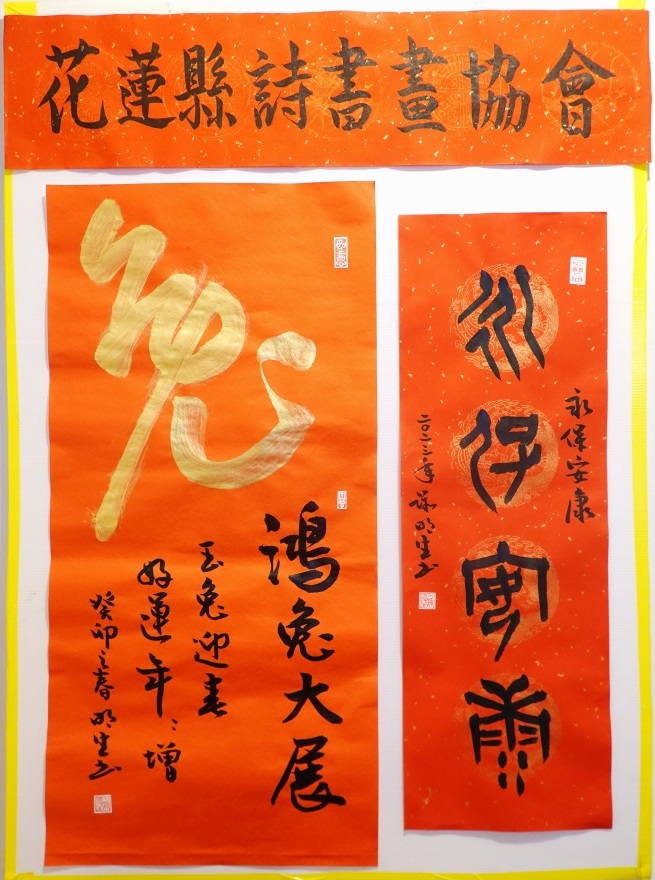 花蓮縣詩書畫協會
永保安康
永保安康
二〇二三年 明生书
兔
鴻兔大展
玉兔迎春
好運年々增
癸卯之春 明生书